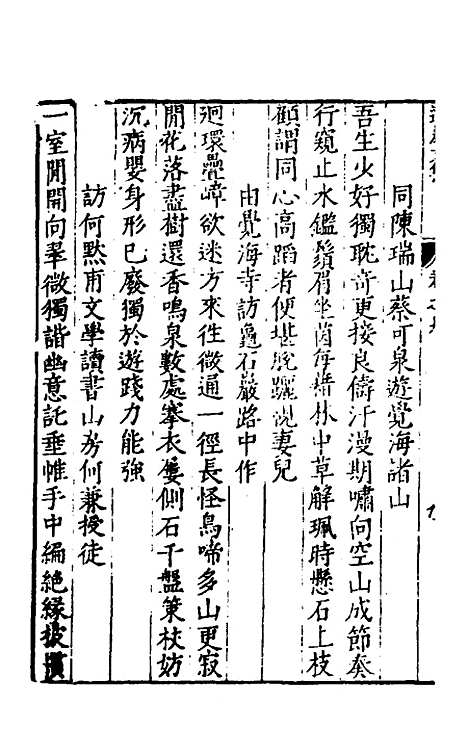 同陳瑞山蔡可泉遊覺海諸山
吾生少好獨耽奇更接良儔汗漫期嘯向空山成節奏
行窺止水鑑鬚眉坐茵每藉林中草解珮時懸石上枝
顧謂同心高蹈者便堪脫躧視妻兒
由覺海寺訪龜石巖路中作
迴環疊嶂欲迷方來徃微通一徑長怪鳥啼多山更寂
閒花落盡樹還香鳴泉數處搴衣屢側石千盤策杖妨
沉病嬰身形已廢獨於遊踐力能強
訪何黙甫文學讀書山房何兼授徒
一室閒開向翠微獨諧幽意託垂帷手中編絕緣披